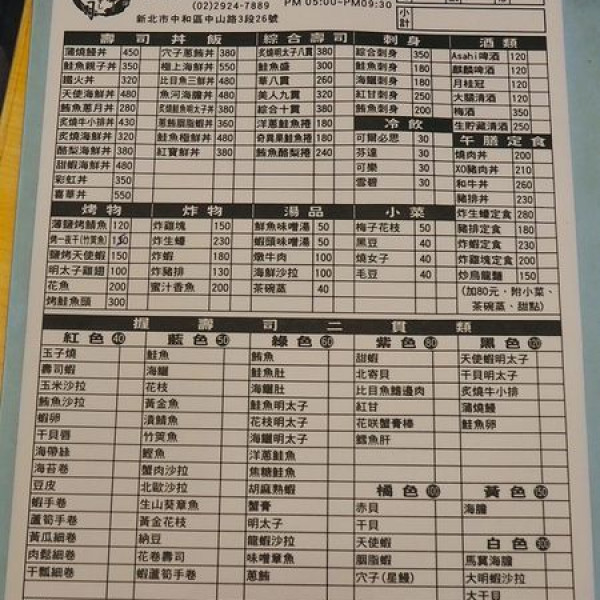 (02)2924-7889 PM 05:00~PM09:30
新北市中和區中山路3段26號
小計
壽司丼飯 綜合壽司 刺身 酒類
蒲燒鰻丼 450 穴子蔥鮪丼 380 炙燒明太子八貫 380 綜合刺身 350 Asahi啤酒 120
鮭魚親子丼 350 極上海鮮丼 550 鮭魚盛 300 鮭魚刺身 180 麒麟啤酒 120
鐵火丼 320 比目魚三鮮丼 480 華八貫 260 海鱺刺身 180 月桂冠 120
天使海鮮丼 480 魚河海膽丼 480 美人九貫 320 紅甘刺身 250 大膳清酒 120
鮪魚蔥月丼 280 炙燒鮭魚明太子丼 380 綜合十貫 380 鮪魚刺身 200 梅酒 350
炙燒牛小排丼 430 蔥鮪胭脂蝦丼 360 洋蔥鮭魚捲 180 冷飲 生貯藏清酒 250
炙燒海鮮丼 320 鮭魚極鮮丼 480 奇異果鮭魚捲 180 可爾必思 30 午膳定食
酪梨海鮮丼 380 紅寶鮮丼 380 鮪魚酪梨捲 240 芬達 30 燒肉丼 200
甜蝦海鮮丼 480 可樂 30 XO豬肉丼 210
彩虹丼 350 雪碧 30 和牛丼 260
嘉華丼 550 豬排丼 230
烤物 炸物 湯品 小菜 炸生蠔定食 280
薄鹽烤鯖魚 120 炸雞塊 150 鮮魚味噌湯 50 梅子花枝 50 豬排定食 180
烤一夜干(竹筴魚) 炸生蠔 230 蝦頭味噌湯 50 黑豆 40 炸蝦定食 230
鹽烤天使蝦 150 炸蝦 180 燉牛肉 100 燒女子 40 炸雞塊定食 200
明太子雞翅 100 炸豬排 130 海鮮沙拉 100 毛豆 40 炒烏龍麵 150
花魚 200 蜜汁香魚 200 茶碗蒸 40 (加80元，附小菜、
烤鮭魚頭 300 茶碗蒸、甜點)
握壽司二貫類
紅色 40 藍色 50 綠色 60 紫色 80 黑色 120
玉子燒 鮭魚 鮪魚 甜蝦 天使蝦明太子
壽司蝦 海鱺 鮭魚肚 北寄貝 干貝明太子
玉米沙拉 花枝 海鱺肚 比目魚鰭邊肉 炙燒牛小排
鮪魚沙拉 黃金魚 鮭魚明太子 紅甘 蒲燒鰻
蝦卵 漬鯖魚 花枝明太子 花咲蟹膏棒 鮭魚卵
干貝唇 竹筴魚 海鱺明太子 鱈魚肝
海帶絲 鰹魚 洋蔥鮭魚
海苔卷 蟹肉沙拉 焦糖鮭魚
豆皮 北歐沙拉 胡麻熟蝦 橘色 100 黃色 150
蝦手卷 生山葵章魚 蟹膏 赤貝 海膽
蘆筍手卷 黃金花枝 明太子 干貝
黃瓜細卷 納豆 龍蝦沙拉 天使蝦 白色 300
肉鬆細卷 花卷壽司 味噌章魚 胭脂蝦 馬糞海膽
干瓢細卷 蝦蘆筍手卷 蔥鮪 穴子(星鰻) 大明蝦沙拉
大干貝